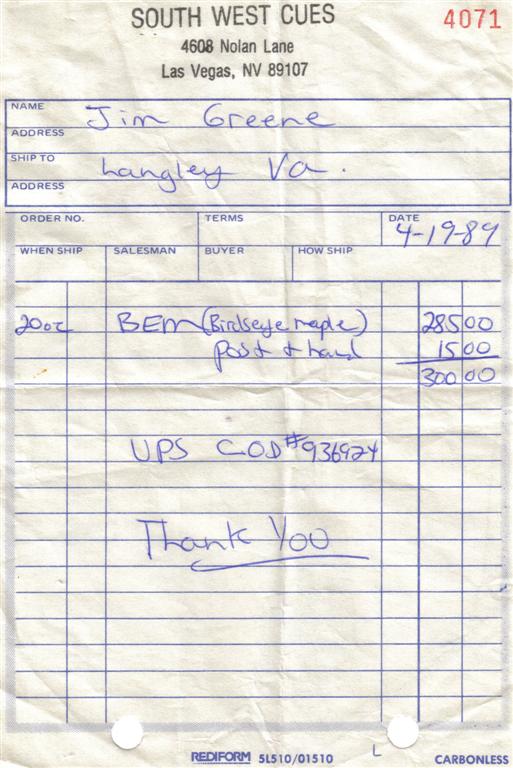 SOUTH WEST CUES
4071
4608 Nolan Lane
Las Vegas, NV 89107
NAME Jim Greene
ADDRESS
SHIP TO Langley Va.
ADDRESS
ORDER NO. TERMS DATE 4-19-89
WHEN SHIP SALESMAN BUYER HOW SHIP
20oz BEM (Birdseye maple) 285 00
post & hand 15 00
300 00
UPS COD #936924
Thank You
REDIFORM 5L510/01510 L CARBONLESS